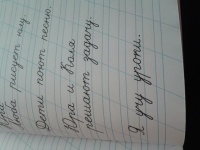 Люба рисует иву.
Дети поют песню.
Юра и Коля
решают задачу.
Я учу уроки.